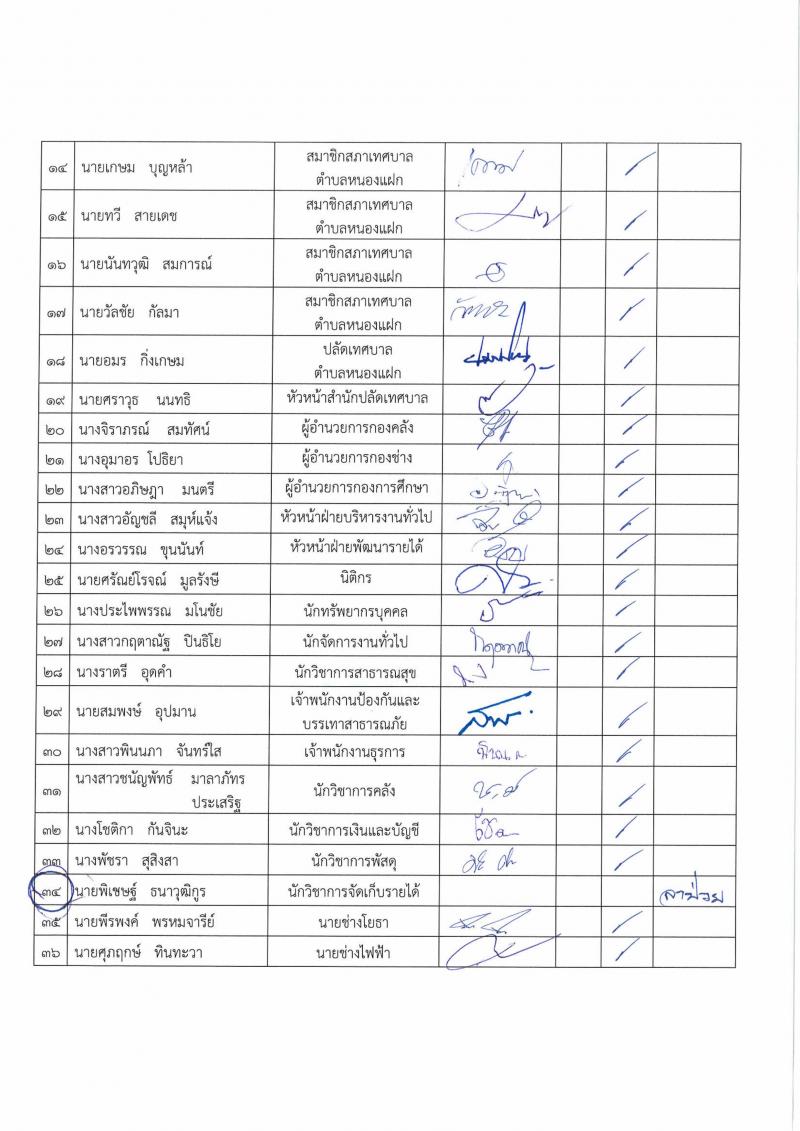 ๑๔ นายเกษม บุญหล้า สมาชิกสภาเทศบาล
ตำบลหนองแฝก
๑๕ นายทวี สายเดช สมาชิกสภาเทศบาล
ตำบลหนองแฝก
๑๖ นายนันทวุฒิ สมการณ์ สมาชิกสภาเทศบาล
ตำบลหนองแฝก
๑๗ นายวัลชัย กัลมา สมาชิกสภาเทศบาล
ตำบลหนองแฝก
๑๘ นายอมร กิ่งเกษม ปลัดเทศบาล
ตำบลหนองแฝก
๑๙ นายศราวุธ นนทธิ หัวหน้าสำนักปลัดเทศบาล
๒๐ นางจิราภรณ์ สมทัศน์ ผู้อำนวยการกองคลัง
๒๑ นางอุมาอร โปธิยา ผู้อำนวยการกองช่าง
๒๒ นางสาวอภิษฎา มนตรี ผู้อำนวยการกองการศึกษา
๒๓ นางสาวอัญชลี สมุห์แจ้ง หัวหน้าฝ่ายบริหารงานทั่วไป
๒๔ นางอรวรรณ ขุนนันท์ หัวหน้าฝ่ายพัฒนารายได้
๒๕ นายศรัณย์โรจณ์ มูลรังษี นิติกร
๒๖ นางประไพพรรณ มโนชัย นักทรัพยากรบุคคล
๒๗ นางสาวกฤตาณัฐ ปินธิโย นักจัดการงานทั่วไป
๒๘ นางราตรี อุดคำ นักวิชาการสาธารณสุข
๒๙ นายสมพงษ์ อุปมาน เจ้าพนักงานป้องกันและ
บรรเทาสาธารณภัย
๓๐ นางสาวพินนภา จันทร์ใส เจ้าพนักงานธุรการ
๓๑ นางสาวชนัญพัทธ์ มาลาภัทร นักวิชาการคลัง
ประเสริฐ
๓๒ นางโชติกา กันจินะ นักวิชาการเงินและบัญชี
๓๓ นางพัชรา สุสิงสา นักวิชาการพัสดุ
๓๔ นายพิเชษฐ์ ธนาวุฒิกูร นักวิชาการจัดเก็บรายได้ ลาป่วย
๓๕ นายพีรพงค์ พรหมจารีย์ นายช่างโยธา
๓๖ นายศุภฤกษ์ ทินทะวา นายช่างไฟฟ้า